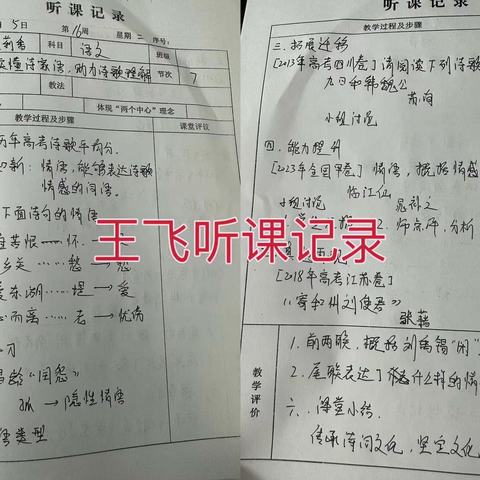 听课记录
月5日 第16周 星期二 序号:
科目 语文 班级
读懂诗家语,助力诗歌理解 节次 7
教法
教学过程及步骤 体现“两个中心”理念
课堂评议
历年高考诗歌平均分.
情语,能够表达诗歌
情感的词语.
下面诗句的情语
恨……怀.
乡关……愁→愁
东湖……堤→爱
心而离……老→忧伤
习
昌龄“闺怨”
→隐性情语
语类型
王飞听课记录
听课记录
教学过程及步骤
三.拓展迁移
[2013年高考四川卷]请阅读下列诗歌
九日和韩魏公
苏洵
小组讨论
四.能力提升
[2023年全国甲卷]情语,概括情感
临江仙
晁补之
小组讨论
2.师点评,分析
[2018年高考江苏卷]
《寄和州刘使君》
张籍
教学评价
1.前两联,概括刘禹锡“闲”
2.尾联表达了什么样的情
六.课堂小结.
传承诗词文化,坚定文化